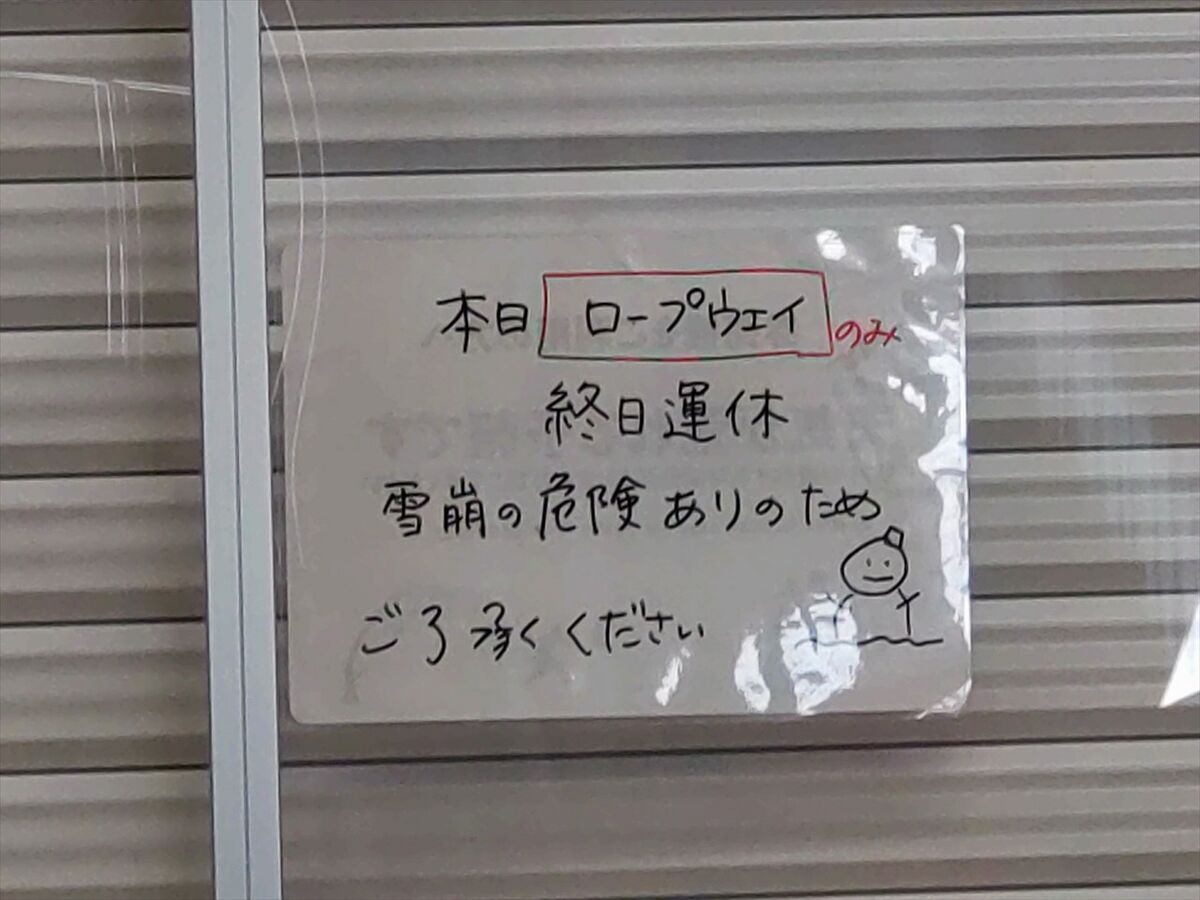 本日 ロープウェイのみ
終日運休
雪崩の危険ありのため
ご了承ください